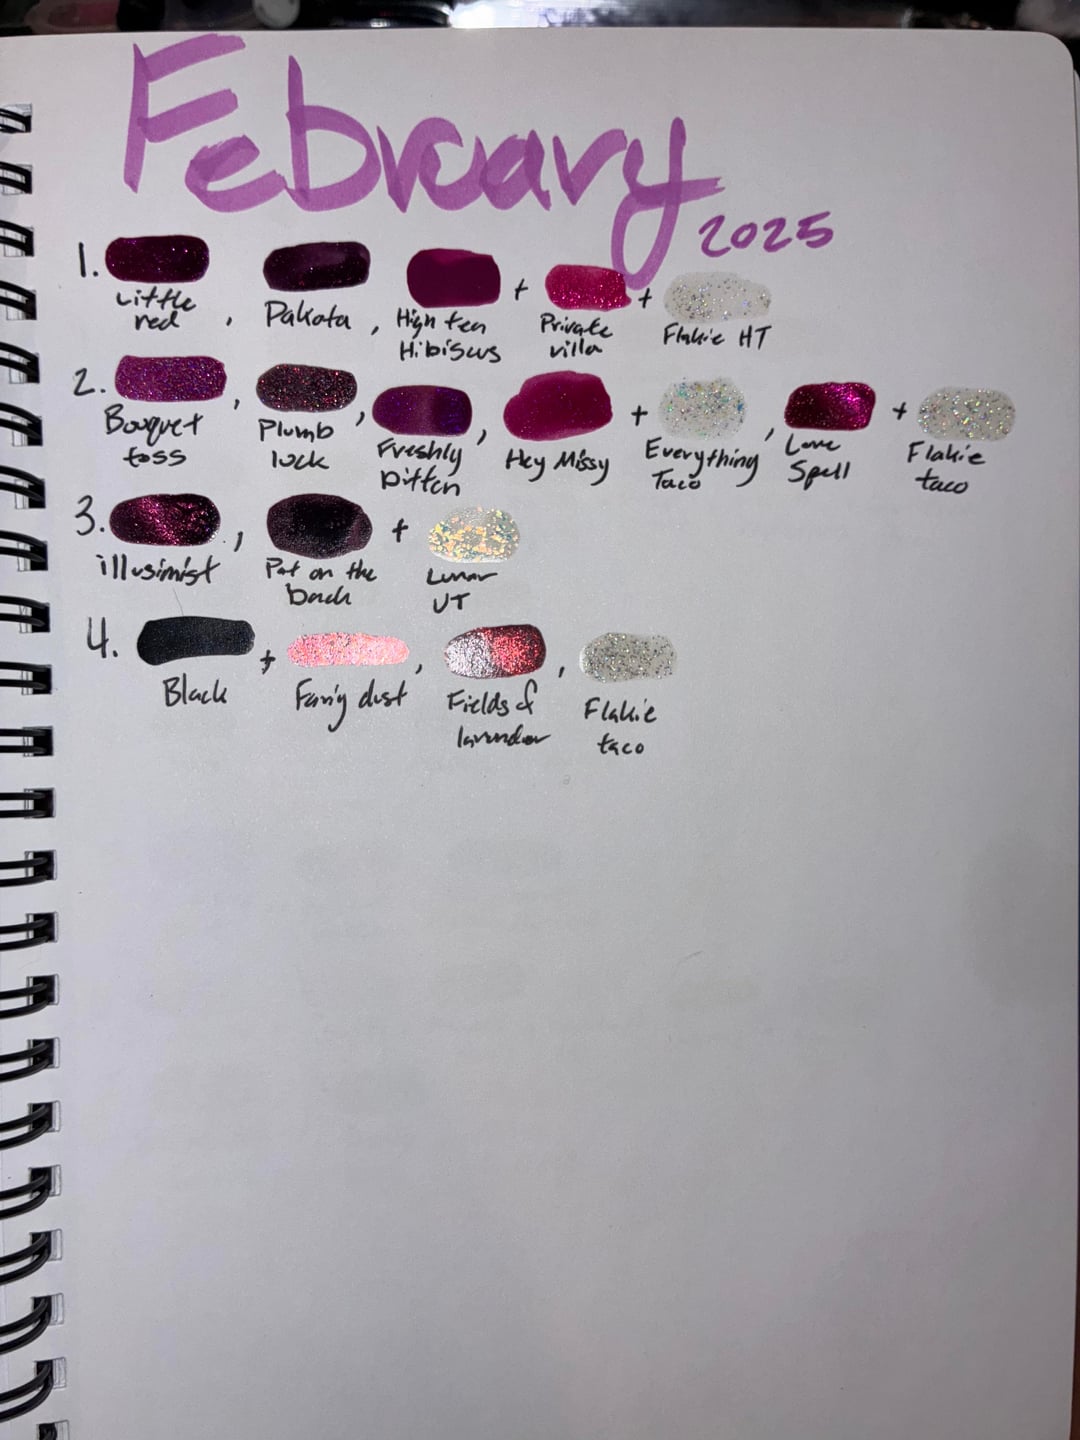 February
2025
1. Little red , Dakota , High ten Hibiscus + Private villa + Flakie HT
2. Bouquet toss , Plumb luck , Freshly Ditten , Hey Missy + Everything Taco , Love Spell + Flakie taco
3. illusimist , Pat on the back + Lunar UT
4. Black + Fairy dust , Fields of lavender , Flakie taco